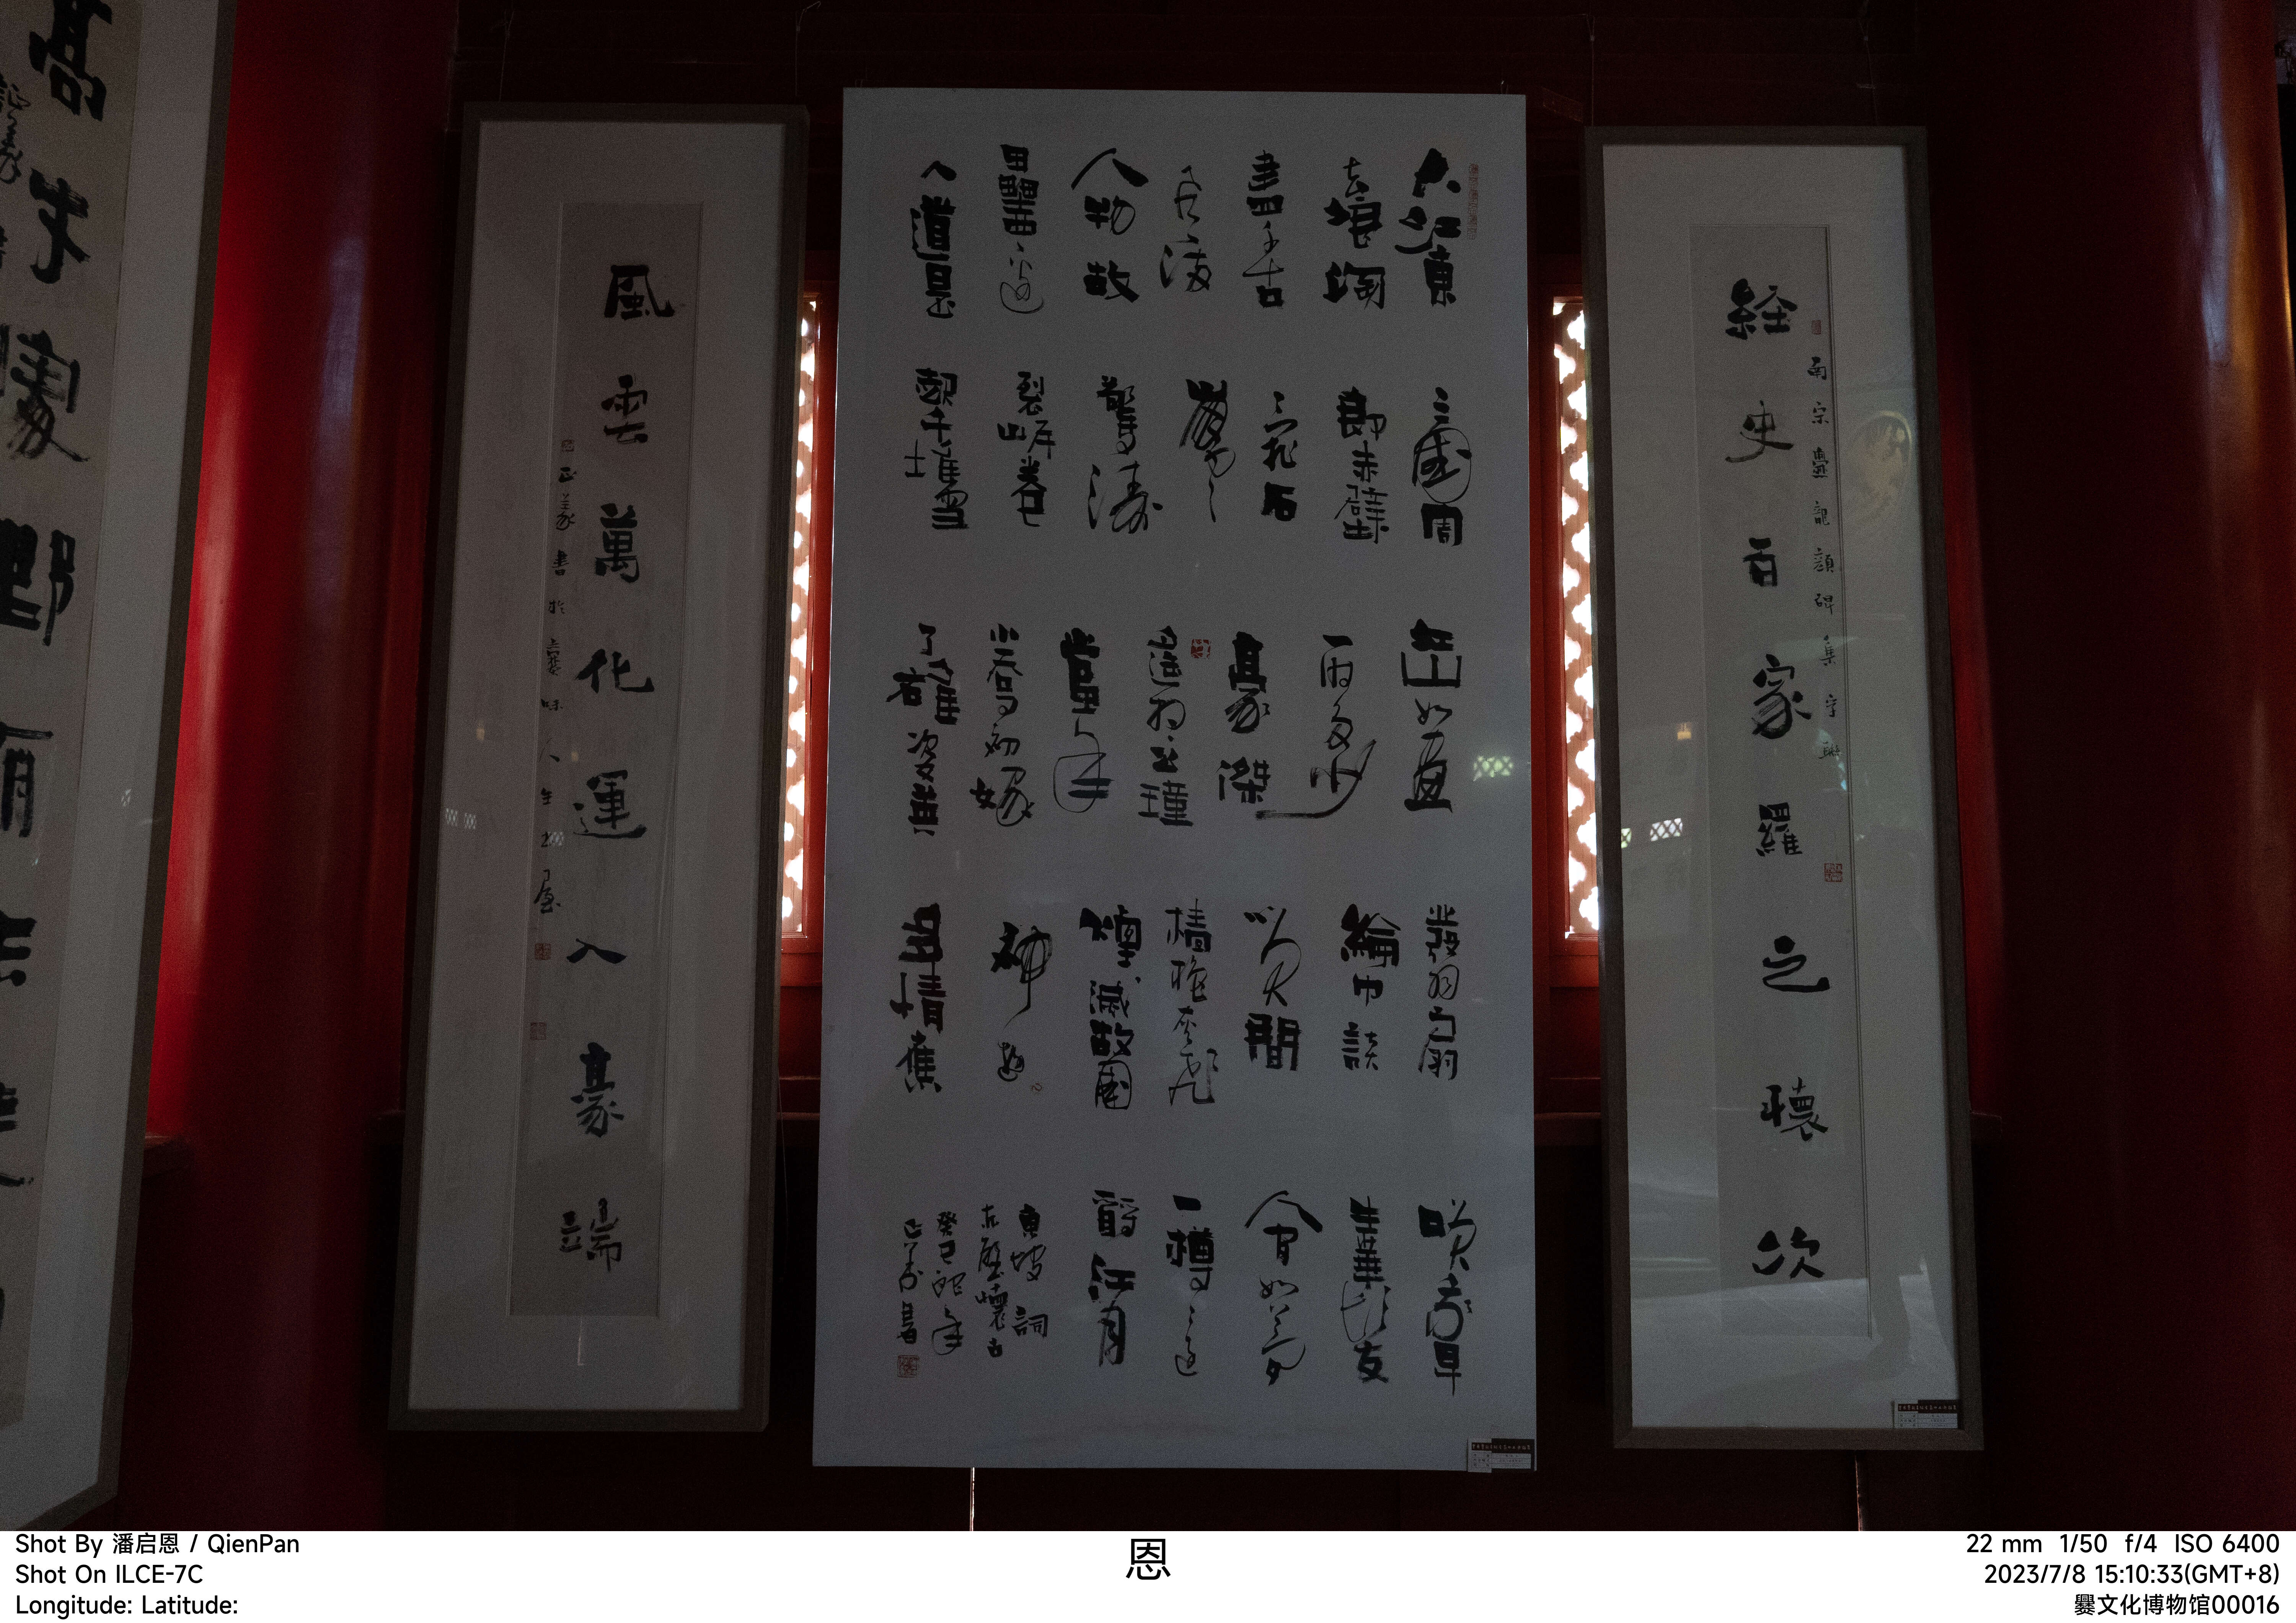 經史百家羅之懷次
南宋爨龍顏碑集字聯
大江東
去浪淘
盡千古
風流
人物故
壘西邊
人道是
三國周
郎赤壁
亂石
崩雲
驚濤
裂岸卷
起千堆雪
江山如畫
一時多少
豪傑
遙想公瑾
當年
小喬初嫁
了雄姿英
發羽扇
綸巾談
笑間
檣櫓灰飛
煙滅故國
神遊
多情應
笑我早
生華髮
人間如夢
一樽還
酹江月
東坡詞
赤壁懷古
癸巳年
正義書
風雲萬化運入豪端
正義書於味人生屋
Shot By 潘启恩 / QienPan
Shot On ILCE-7C
Longitude: Latitude:
恩
22 mm 1/50 f/4 ISO 6400
2023/7/8 15:10:33(GMT+8)
爨文化博物馆00016